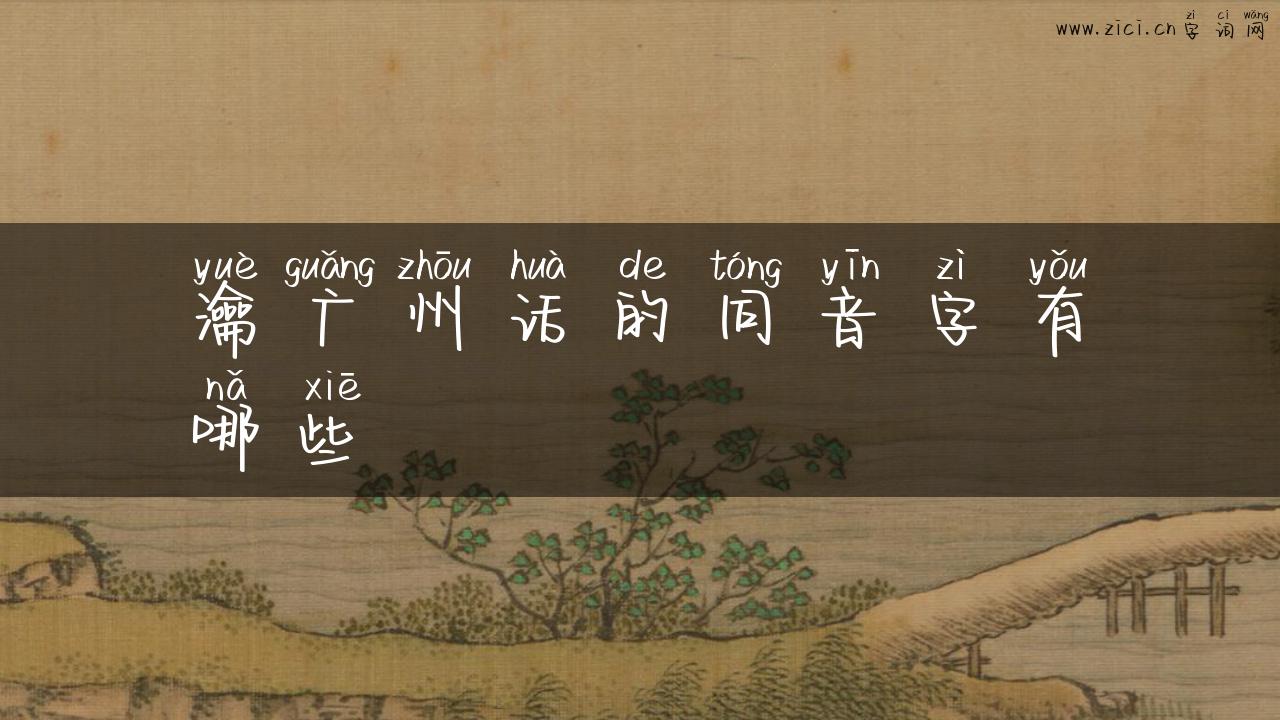 zì cí wǎng
www.zici.cn 字词网
yuè guǎng zhōu huà de tóng yīn zì yǒu
瀹广州话的同音字有
nǎ xiē
哪些